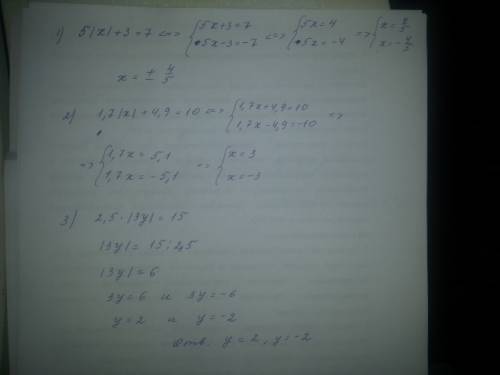 1) 5|x|+3=7 <=> {5x+3=7 <=> {5x=4 => {x=4/5
5x-3=-7 5x=-4 x=-4/5
x=± 4/5
2) 1,7|x|+4,9=10 <=> {1,7x+4,9=10 =>
1,7x-4,9=-10
=> {1,7x=5,1 => {x=3
1,7x=-5,1 x=-3
3) 2,5·|3y|=15
|3y|=15:2,5
|3y|=6
3y=6 и 3y=-6
y=2 и y=-2
Отв. y=2, y=-2